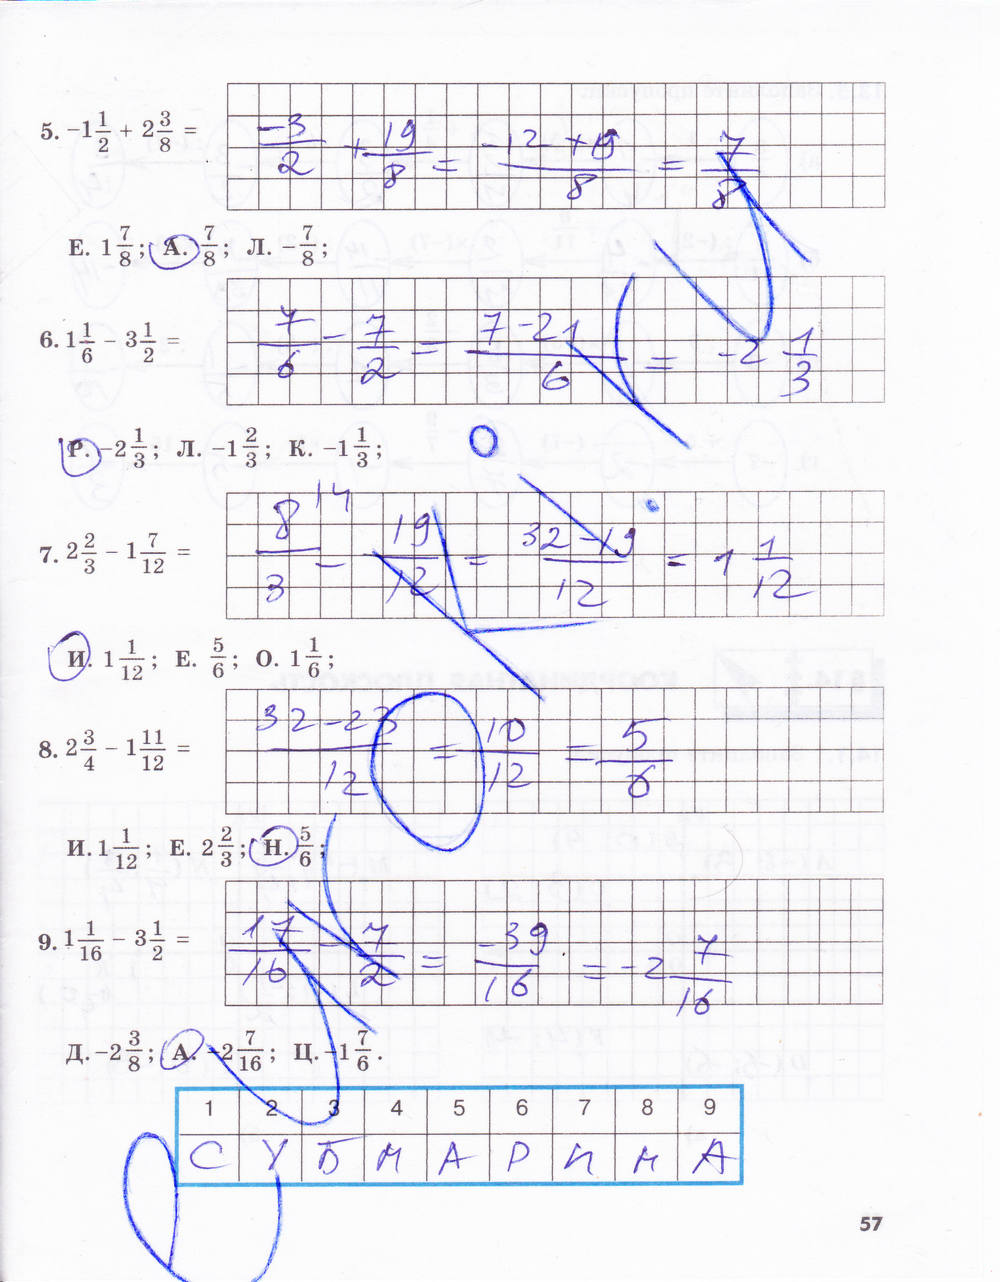 5. −1 1/2 + 2 3/8 = −3/2 + 19/8 = −12 + 19/8 = 7/8
Е. 1 7/8; А. 7/8; Л. −7/8;
6. 1 1/6 − 3 1/2 = 7/6 − 7/2 = 7−21/6 = −2 1/3
Р. −2 1/3; Л. −1 2/3; К. −1 1/3;
7. 2 2/3 − 1 7/12 = 8/3 14 − 19/12 = 32−19/12 = 1 1/12
И. 1 1/12; Е. 5/6; О. 1 1/6;
8. 2 3/4 − 1 11/12 = 32−23/12 = 10/12 = 5/6
И. 1 1/12; Е. 2 2/3; Н. 5/6;
9. 1 1/16 − 3 1/2 = 17/16 − 7/2 = −39/16 = −2 7/16
Д. −2 3/8; А. −2 7/16; Ц. −1 7/6.
1 2 3 4 5 6 7 8 9
С У Б М А Р И Н А
57